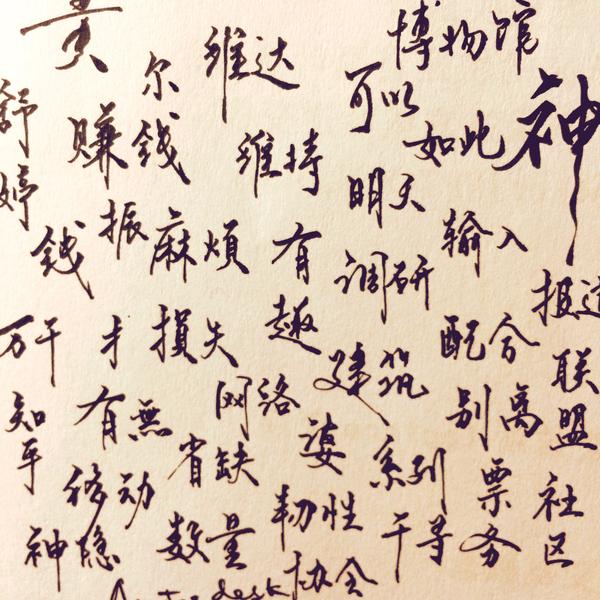 博物馆
维达
尔
可以
舒婷
赚钱
如此
神
维持
明天
钱
振
麻烦
有趣
输入
调研
报道
万千
才
损失
配合
建筑
联盟
网络
知乎
有無
别离
省缺
婆
系列
票
移动
社区
韧性
神隐
数量
干寻
务
协会